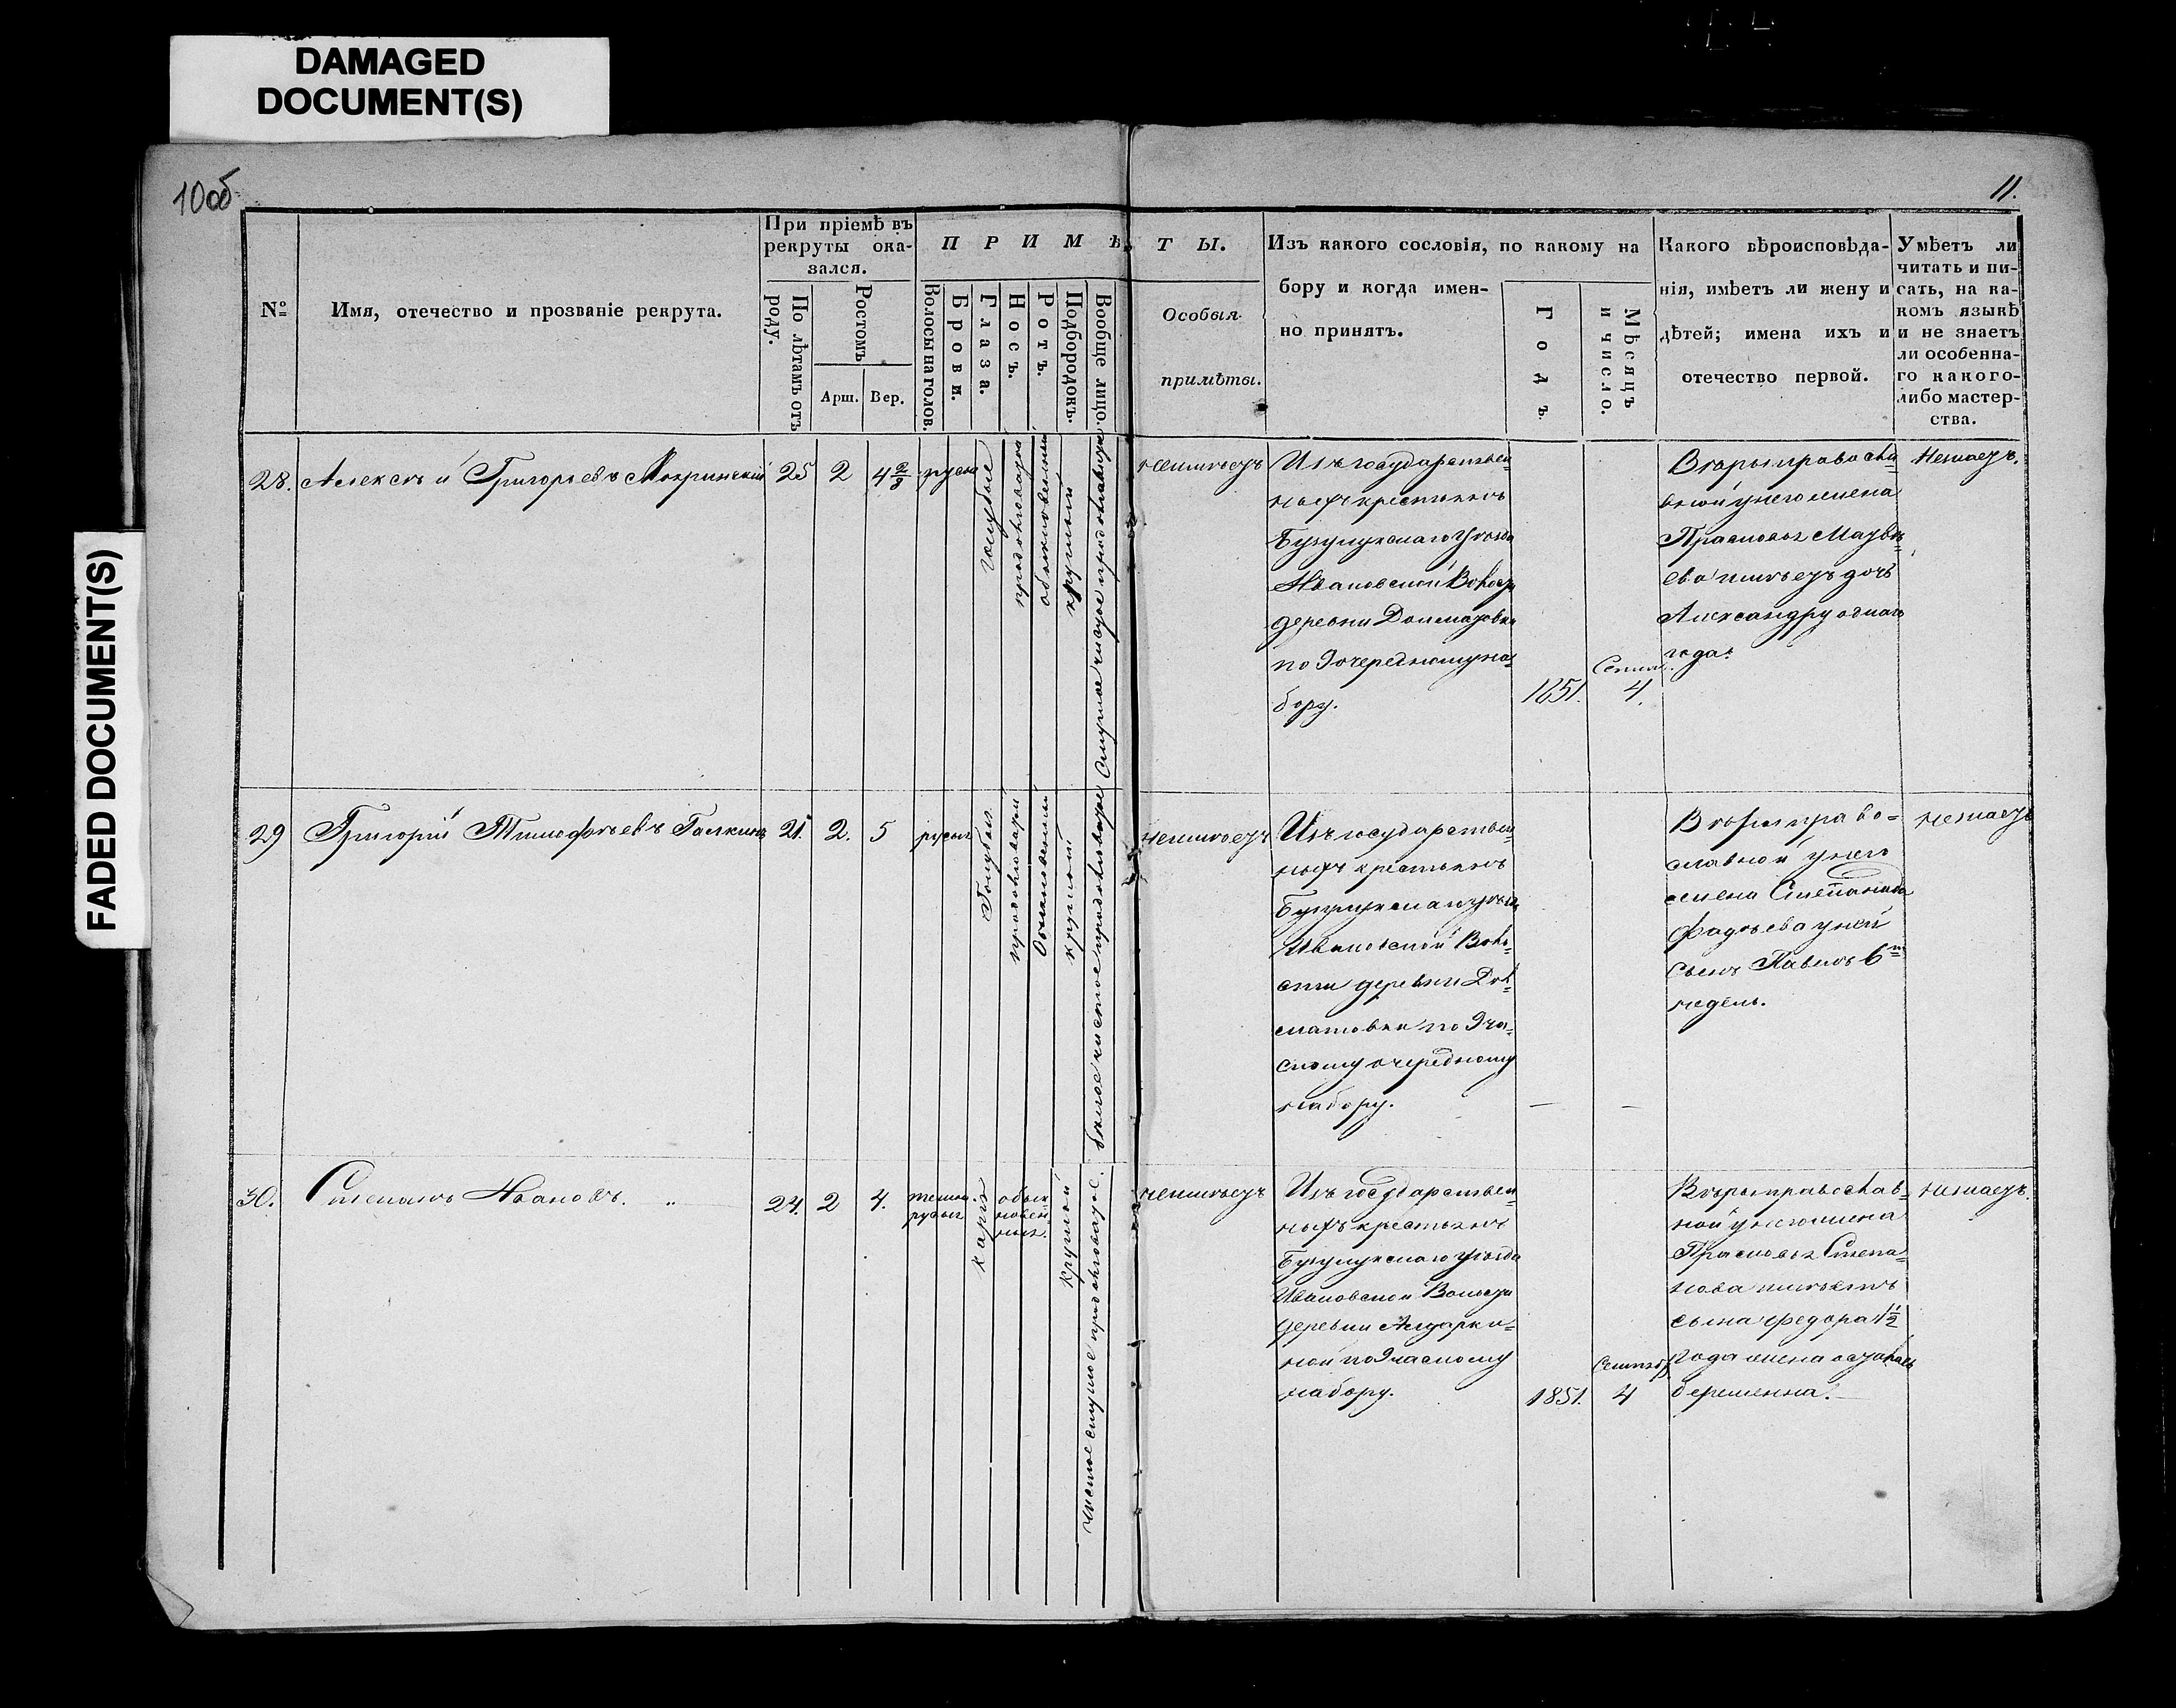 DAMAGED
DOCUMENT(S)
FADED DOCUMENT(S)
10об
11.
№
Имя, отечество и прозваніе рекрута.
При пріемѣ въ
рекруты ока-
зался.
По лѣтамъ отъ
роду.
Ростомъ
Арш.
Вер.
ПРИМѢТЫ.
Волосы на голов.
Брови.
Глаза.
Носъ.
Ротъ.
Подбородокъ.
Вообще лицо.
Особыя
примѣты.
Изъ какого сословія, по какому на
бору и когда имен-
но принятъ.
Годъ
Мѣсяцъ
и число.
Какого вѣроисповѣда-
нія, имѣетъ ли жену и
дѣтей; имена ихъ и
отечество первой.
Умѣетъ ли
читать и пи-
сать, на ка-
комъ языкѣ
и не знаетъ
ли особенна-
го какого-
либо мастер-
ства.
28.
Алексѣй Григорьевъ
25
2
4 2/8
русы
голубые
продолговатой
обыкновенный
круглый
Смуглое чистое продолговатое
неимѣетъ
Изъ государствен=
ныхъ крестьянъ
Бузулукскаго уѣзда
Ивановской Волости
деревни
по 9 очередному на=
бору.
1851.
Сентя.
4.
Вѣры правосла=
вной у него жена
Прасковья
ева имѣетъ дочь
Александру одного
года.
Незнаетъ.
29
Григорій Тимофѣевъ Галкинъ
21.
2.
5
русыя
Голубыя
продолговатой
Обыкновенный
круглый
бѣлое чистое продолговатое
неимѣетъ
Изъ государствен=
ныхъ крестьянъ
Бузулукскаго уѣзда
Ивановской Воло=
сти деревни Дол=
матовки по 9 ча=
стному очередному
набору.
—
—
Вѣры право=
славной у него
жена Степанида
Фадѣева у ней
сынъ Павелъ 6ти
недѣль.
незнаетъ
30.
Степанъ Ивановъ. „
24.
2
4.
темно
русыя
карія
обык
новен=
ныя.
круглой
чистое смуглое продолговатое.
неимѣетъ
Изъ государствен=
ныхъ крестьянъ
Бузулукскаго уѣзда
Ивановской Волости
деревни Алдарки=
ной по 9 частному
набору.
1851.
Сентяб.
4
Вѣры православ=
ной у него жена
Прасковья Степа=
нова имѣетъ
сына Федора 1½
года жена осталась
беременна.
незнаетъ.